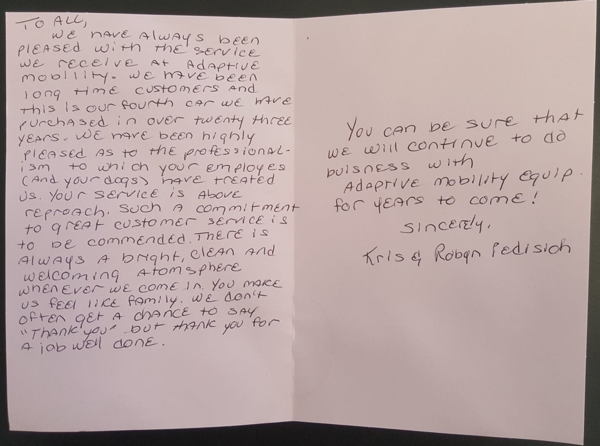 To All,
We have always been
pleased with the service
we receive at Adaptive
Mobility. We have been
long time customers and
this is our fourth car we have
purchased in over twenty three
years. We have been highly
pleased as to the professional-
ism to which your employes
(and your dogs) have treated
us. Your service is above
reproach. Such a commitment
to great customer service is
to be commended. There is
always a bright, clean and
welcoming atomsphere
whenever we come in. You make
us feel like family. We don't
often get a chance to say
"Thank you" but thank you for
a job well done.
You can be sure that
we will continue to do
buisness with
Adaptive Mobility Equip.
for years to come!
Sincerely,
Kris & Robyn Pedisich